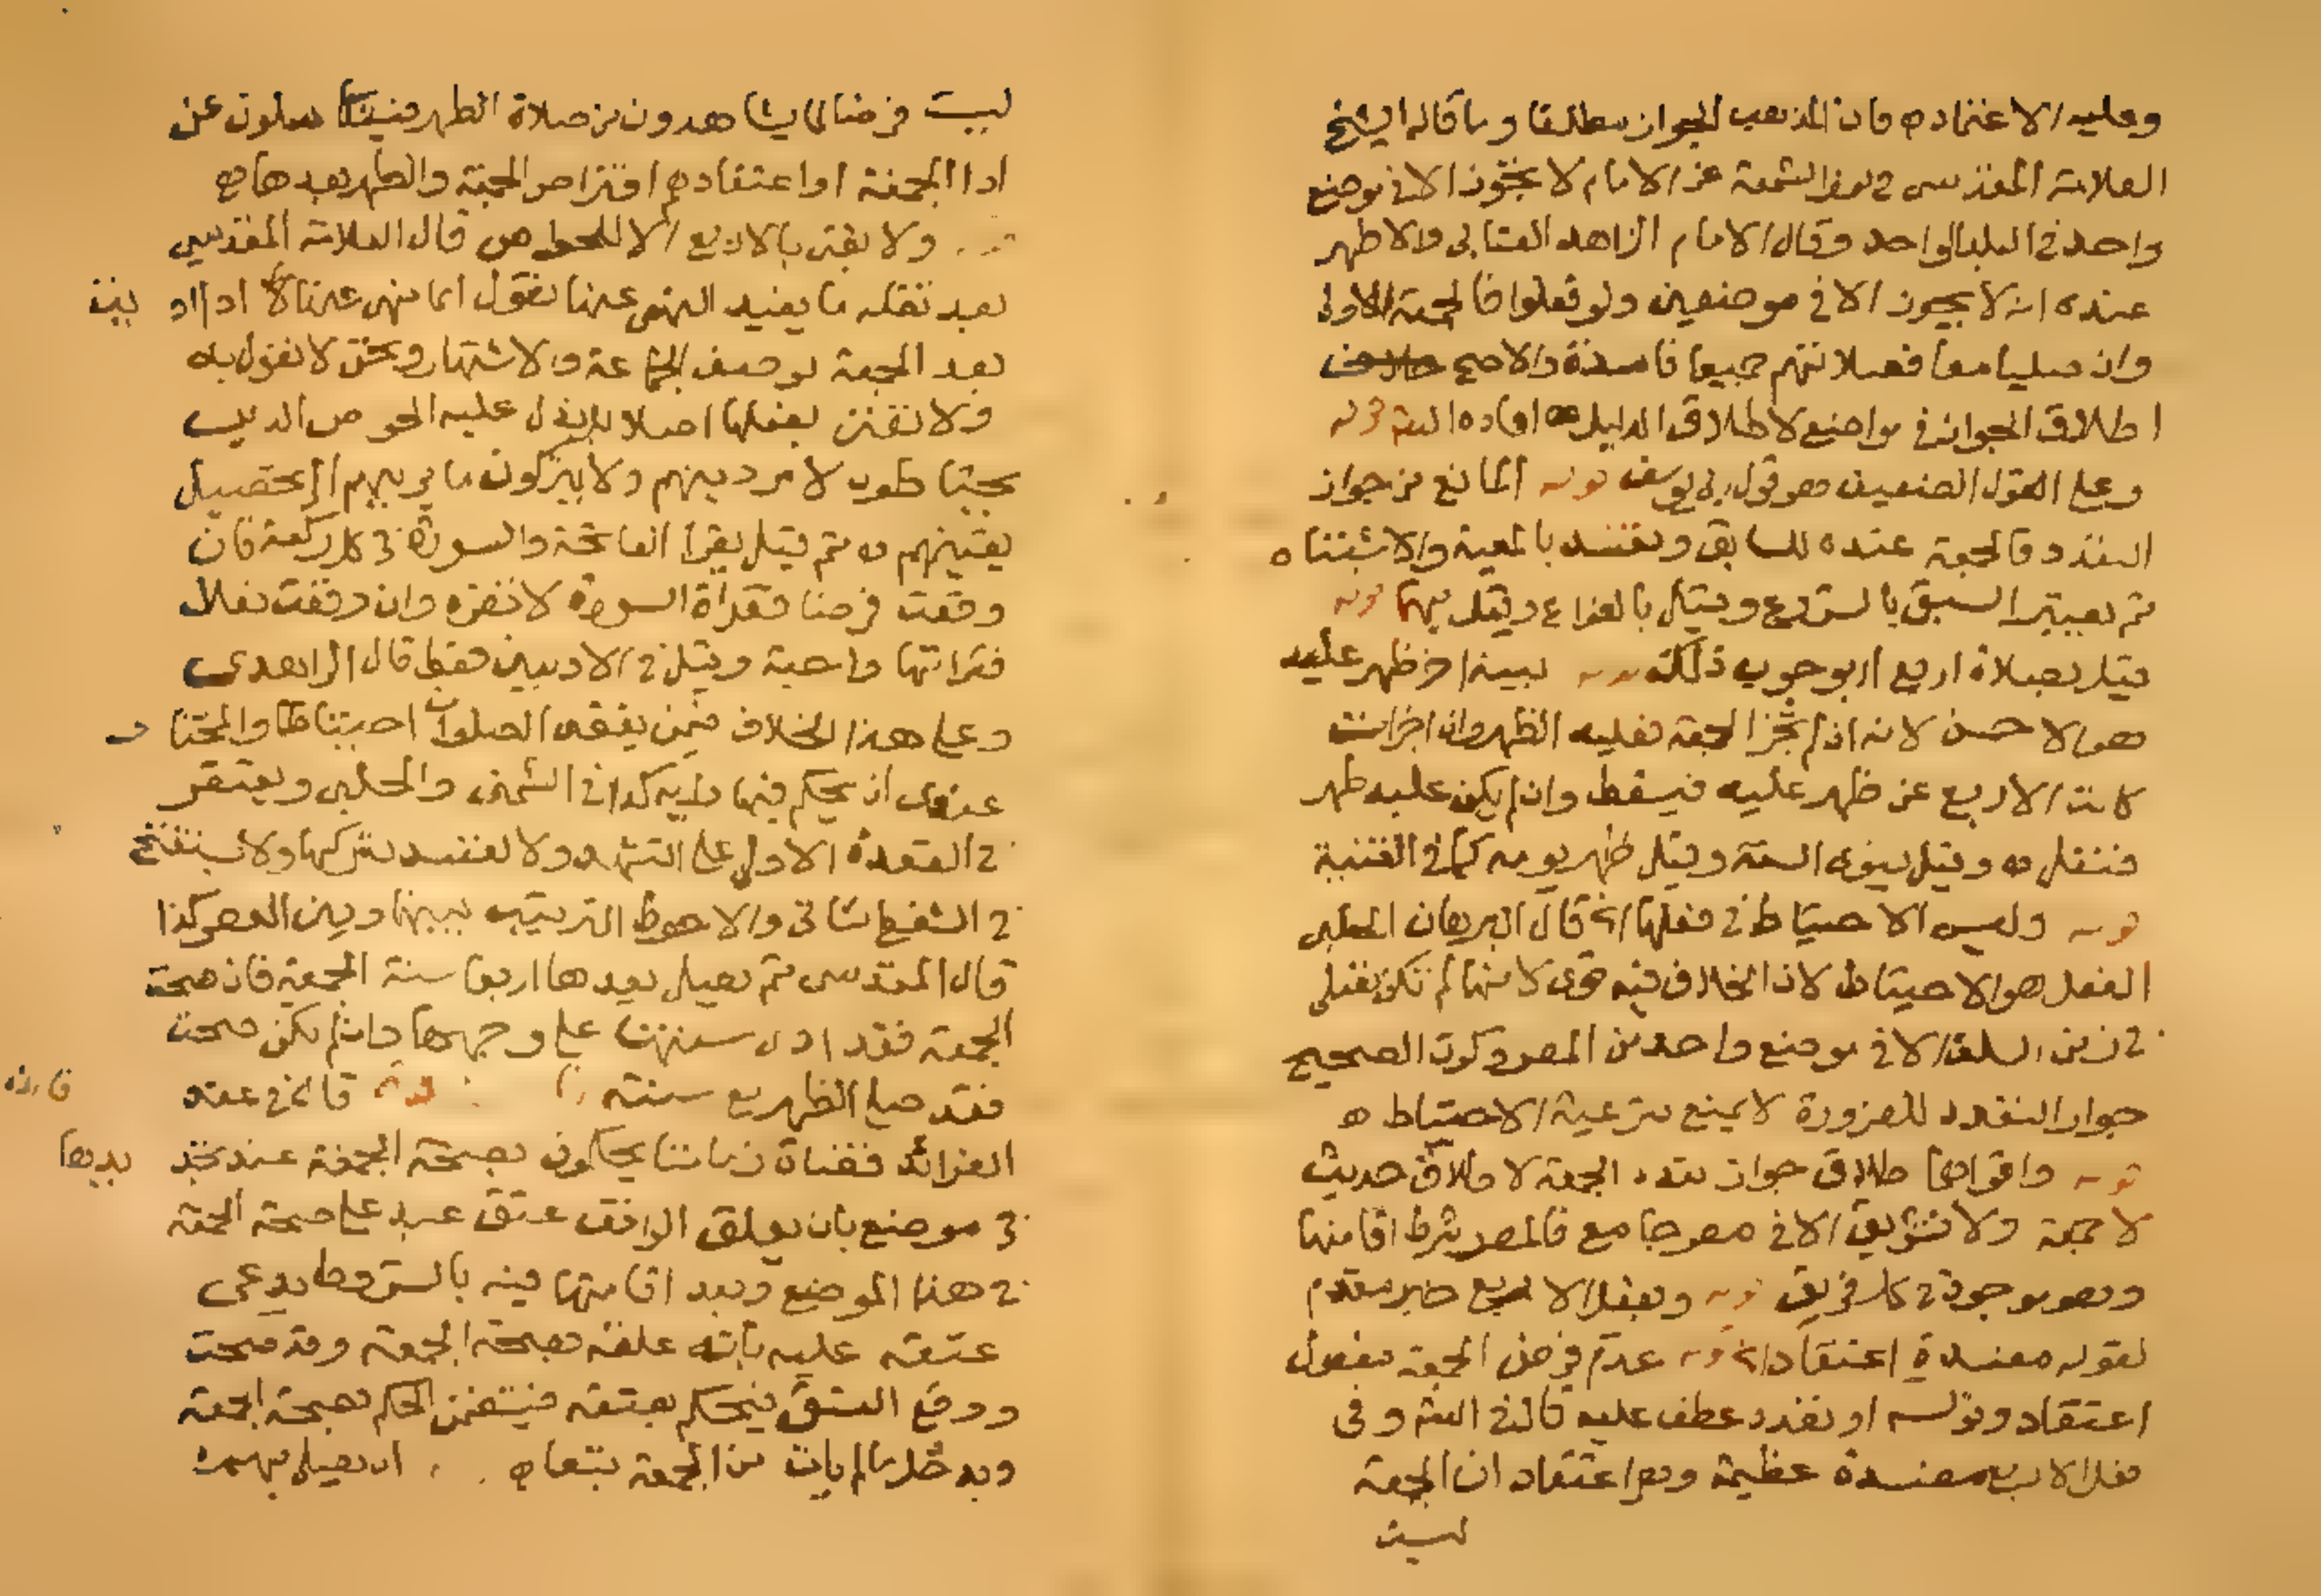 وعليه الاعتماد ه فان المذهب الجواز مطلقا وما قاله الشيخ
العلامة المقدسي في نور الشمعة عن الامام لا يجوز الا في موضع
واحد في البلد الواحد وقال الامام الزاهد العتابي والاظهر
عنده انه لا يجوز الا في موضعين ولو فعلوا فالجمعة للاولى
وان صليا معا فصلاتهم جميعا فاسدة والاصح
اطلاق الجواز في مواضع لاطلاق الدليل ه افاده السيد قوله
وعلى القول الضعيف هو قول ابي يوسف قوله المانع من جواز
التعدد فالجمعة عنده للسابق وتفسد بالمعية والاشتباه
ثم يعتبر السبق بالشروع وقيل بالفراغ وقيل بهما قوله
قيل بصلاة اربع اي بوجوب ذلك قوله بنية اخر ظهر عليه
هو الاحسن لانه ان لم تجز الجمعة فعليه الظهر وان اجزات
كانت الاربع عن ظهر عليه فيسقط وان لم يكن عليه ظهر
فنفل ه وقيل ينوي السنة وقيل ظهر يومه كما في القنية
قوله وليس الاحتياط في فعلها الخ قال البرهان الحلبي
الفعل هو الاحتياط لان الخلاف فيه قوي لانها لم تكن تصلى
في زمن السلف الا في موضع واحد من المصر وكون الصحيح
جواز التعدد للضرورة لا يمنع شرعية الاحتياط ه
قوله واقواهما اطلاق جواز تعدد الجمعة لاطلاق حديث
لا جمعة ولا تشريق الا في مصر جامع فالمصر شرط اقامتها
وهو موجود في كل فريق قوله وبفعل الاربع خبر مقدم
لقوله مفسدة اعتقاد الخ قوله عدم فرض الجمعة مفعول
اعتقاد وقوله او تعدد عطف عليه قال في الشرح وفي
فعل الاربع مفسدة عظيمة وهو اعتقاد ان الجمعة
ليست
ليست فرضا لما يشاهدون من صلاة الظهر فيتكاسلون عن
اداء الجمعة او اعتقادهم افتراض الجمعة والظهر بعدها ه
ولا يفتى بالاربع الا للخواص قال العلامة المقدسي
بعد نقله ما يفيد النهي عنها نقول انما نهى عنها اذا اديت
بعد الجمعة بوصف الجماعة والاشتهار ونحن لا نقول به
ولا نفتي بفعلها اصلا بل ندل عليه الخواص الذين
يحتاطون لامر دينهم ولا يتركون ما يريبهم الى تحصيل
يقينهم ه ثم قيل يقرا الفاتحة والسورة في كل ركعة فان
وقعت فرضا فقراة السورة لا تضره وان وقعت نفلا
فقراتها واجبة وقيل في الاوليين فقط قال الزاهدي
وعلى هذا الخلاف فيمن يقضي الصلوات احتياطا والمختار
عندي ان يحكم فيها رايه كذا في الشمني والحلبي ويقتصر
في القعدة الاولى على التشهد ولا تفسد بتركها ولا يستفتح
في الشفع الثاني والاحوط الترتيب بينها وبين العصر كذا
قال المقدسي ثم يصلي بعدها اربعا سنة الجمعة فان صحت
الجمعة فقد ادى سنتها على وجهها وان لم يكن صحت
فقد صلى الظهر مع سنته فائدة قال في عقد
الفرائد فقضاة زماننا يحكمون بصحة الجمعة عند تجديدها
في موضع بان يعلق الواقف عتق عبد على صحة الجمعة
في هذا الموضع وبعد اقامتها فيه بالشروط يدعي
عتقه عليه بانه علقه بصحة الجمعة وقد صحت
ووقع العتق فيحكم بعتقه فيتضمن الحكم بصحة الجمعة
ويدخل ما لم يات من الجمعة تبعا ه ان يصلي بهم